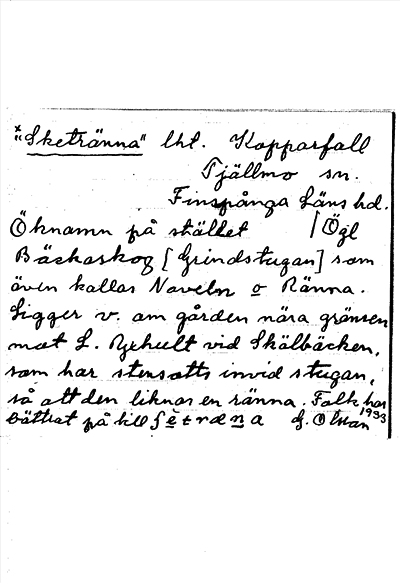 *"Sketränna" lht. Kopparfall
Tjällmo sn.
Finspånga Läns hd.
Öknamn på stället / Ögl
Bäckaskog [Grindstugan] som
även kallas Naveln o Ränna.
Ligger v. om gården nära gränsen
mot L. Ryhult vid Skälbäcken,
som har stensatts invid stugan,
så att den liknar en ränna. Folk har
bättrat på till ʃètræna G. Olson
1933